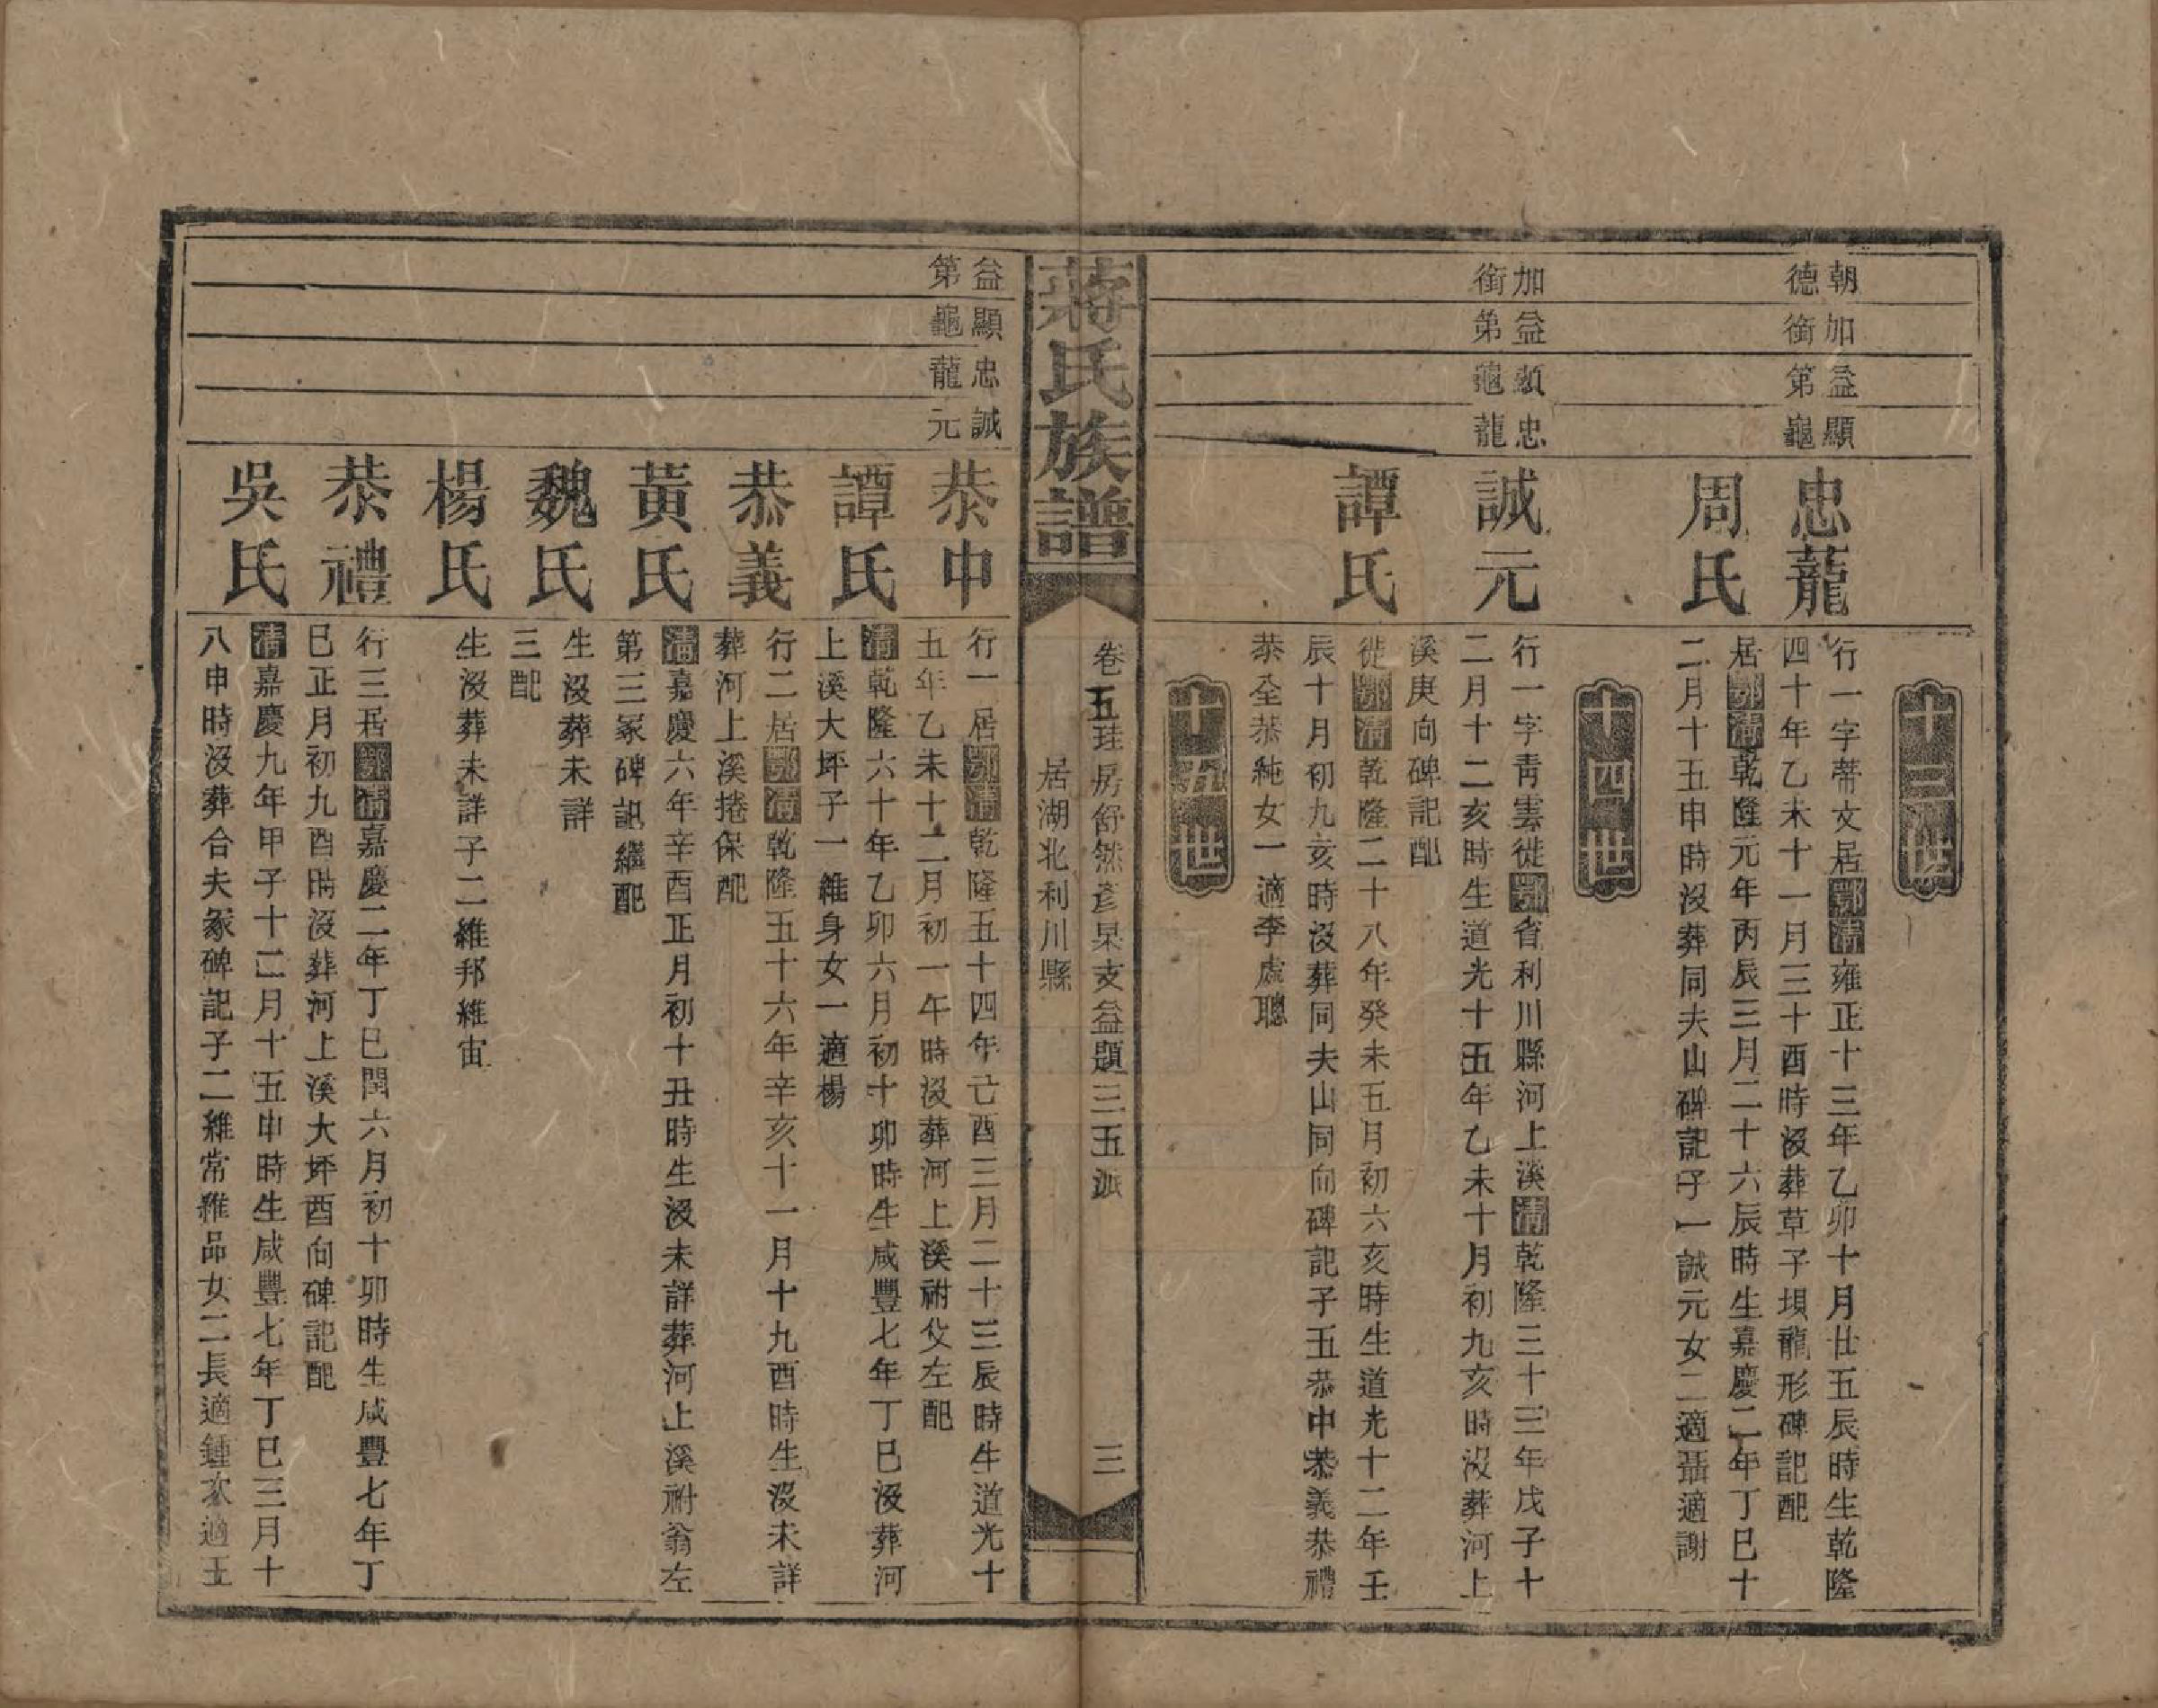 朝加益顯
德銜第龜
十三世
忠龍
行一字蒂文居鄂清雍正十三年乙卯十月廿五辰時生乾隆
四十年乙未十一月三十酉時沒葬草子垻龍形碑記配
周氏
居鄂清乾隆元年丙辰三月二十六辰時生嘉慶二年丁巳十
二月十五申時沒葬同夫山碑記子一誠元女二適聶適謝
十四世
加益顯忠
銜第龜龍
誠元
行一字靑雲徙鄂省利川縣河上溪清乾隆三十三年戊子十
二月十二亥時生道光十五年乙未十月初九亥時沒葬河上
溪庚向碑記配
譚氏
徙鄂清乾隆二十八年癸未五月初六亥時生道光十二年壬
辰十月初九亥時沒葬同夫山同向碑記子五恭中恭義恭禮
恭全恭純女一適李處聰
十五世
蔣氏族譜
卷五珪房舒然彥杲支益題三五派
居湖北利川縣
三
益顯忠誠
第龜龍元
恭中
行一居鄂清乾隆五十四年己酉三月二十三辰時生道光十
五年乙未十二月初一午時沒葬河上溪祔父左配
譚氏
清乾隆六十年乙卯六月初十卯時生咸豐七年丁巳沒葬河
上溪大坪子一維身女一適楊
恭義
行二居鄂清乾隆五十六年辛亥十一月十九酉時生沒未詳
葬河上溪捲保配
黃氏
清嘉慶六年辛酉正月初十丑時生沒未詳葬河上溪祔翁左
第三冢碑記繼配
魏氏
生沒葬未詳
三配
楊氏
生沒葬未詳子二維邦維宙
恭禮
行三居鄂清嘉慶二年丁巳閏六月初十卯時生咸豐七年丁
巳正月初九酉時沒葬河上溪大坪酉向碑記配
吳氏
清嘉慶九年甲子十二月十五申時生咸豐七年丁巳三月十
八申時沒葬合夫冢碑記子二維常維品女二長適鍾次適王